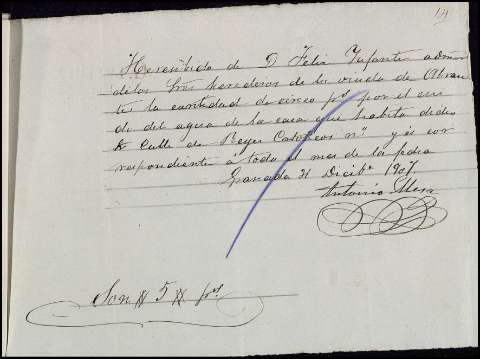 He recibido de D Felix Infante admor
de los Sres herederos de la viuda de Abran
tes la cantidad de cinco pts por el cui
do del agua de la casa que habita dicho
Calle de Reyes Catolicos nº y es cor
respondiente á todo el mes de la fecha
Granada 31 Dicibe 1907.
Antonio Mesa
Son # 5 # pts